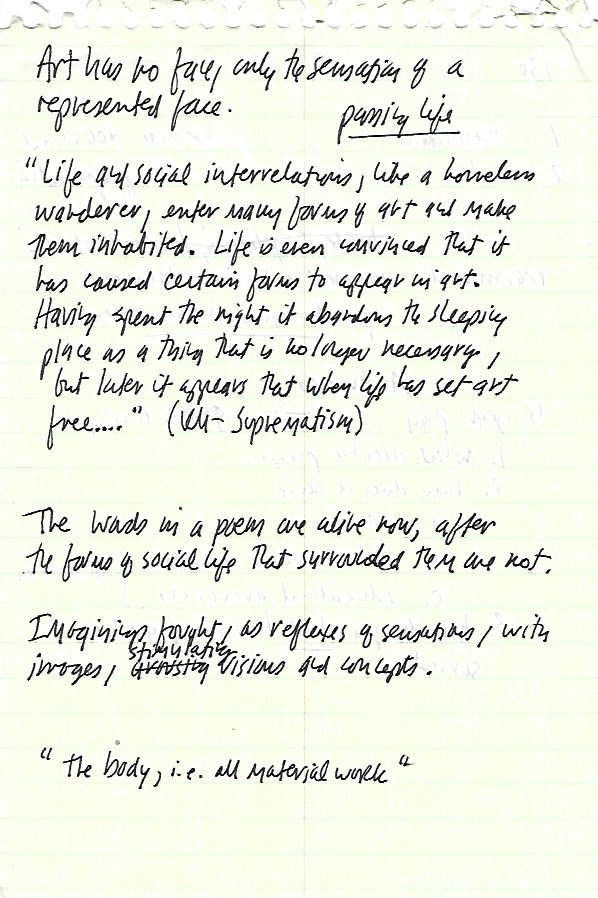 Art has no face, only the sensation of a
represented face.
passing life
"Life and social interrelations, like a homeless
wanderer, enter many forms of art and make
them inhabited. Life is even convinced that it
has caused certain forms to appear in art.
Having spent the night it abandons the sleeping
place as a thing that is no longer necessary,
but later it appears that when life has set art
free...." (KM- Suprematism)
The words in a poem are alive now, after
the forms of social life that surrounded them are not.
Imaginings fought, as reflexes of sensations, with
stimulating
images, visions and concepts.
"the body, i.e. all material work"